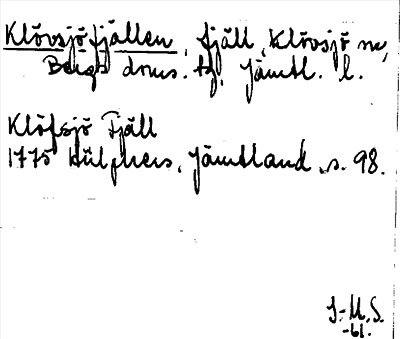 Klövsjöfjällen, fjäll, Klövsjö sn,
Bergs doms. tg. Jämtl. l.
Klöfsjö Fjäll
1775 Hülphers, Jämtland, s. 98.
I-M.S.
-61.